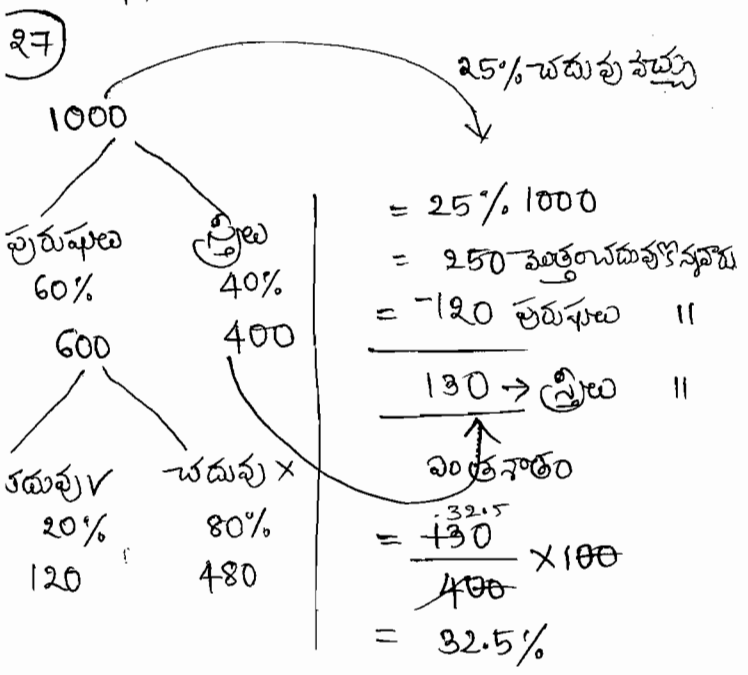 27
1000
పురుషులు స్త్రీలు
60% 40%
600 400
చదువు✓ చదువు ×
20% 80%
120 480
25% చదువు వేచ్చు
= 25% 1000
= 250 మొత్తం చదువుకొన్నవారు
= -120 పురుషులు "
130 → స్త్రీలు "
ఎంత శాతం
32.5
= 130
400 ×100
= 32.5%